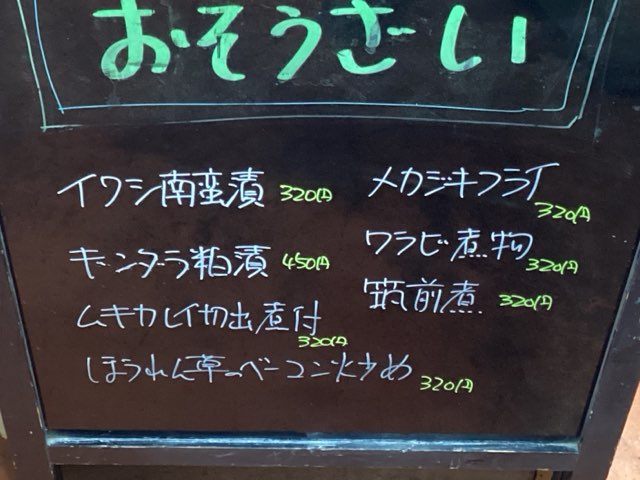 おそうざい
イワシ南蛮漬 320円
ギンダラ粕漬 450円
ムキカレイ切出煮付 320円
ほうれん草のベーコン炒め 320円
メカジキフライ 320円
ワラビ煮物 320円
筑前煮 320円